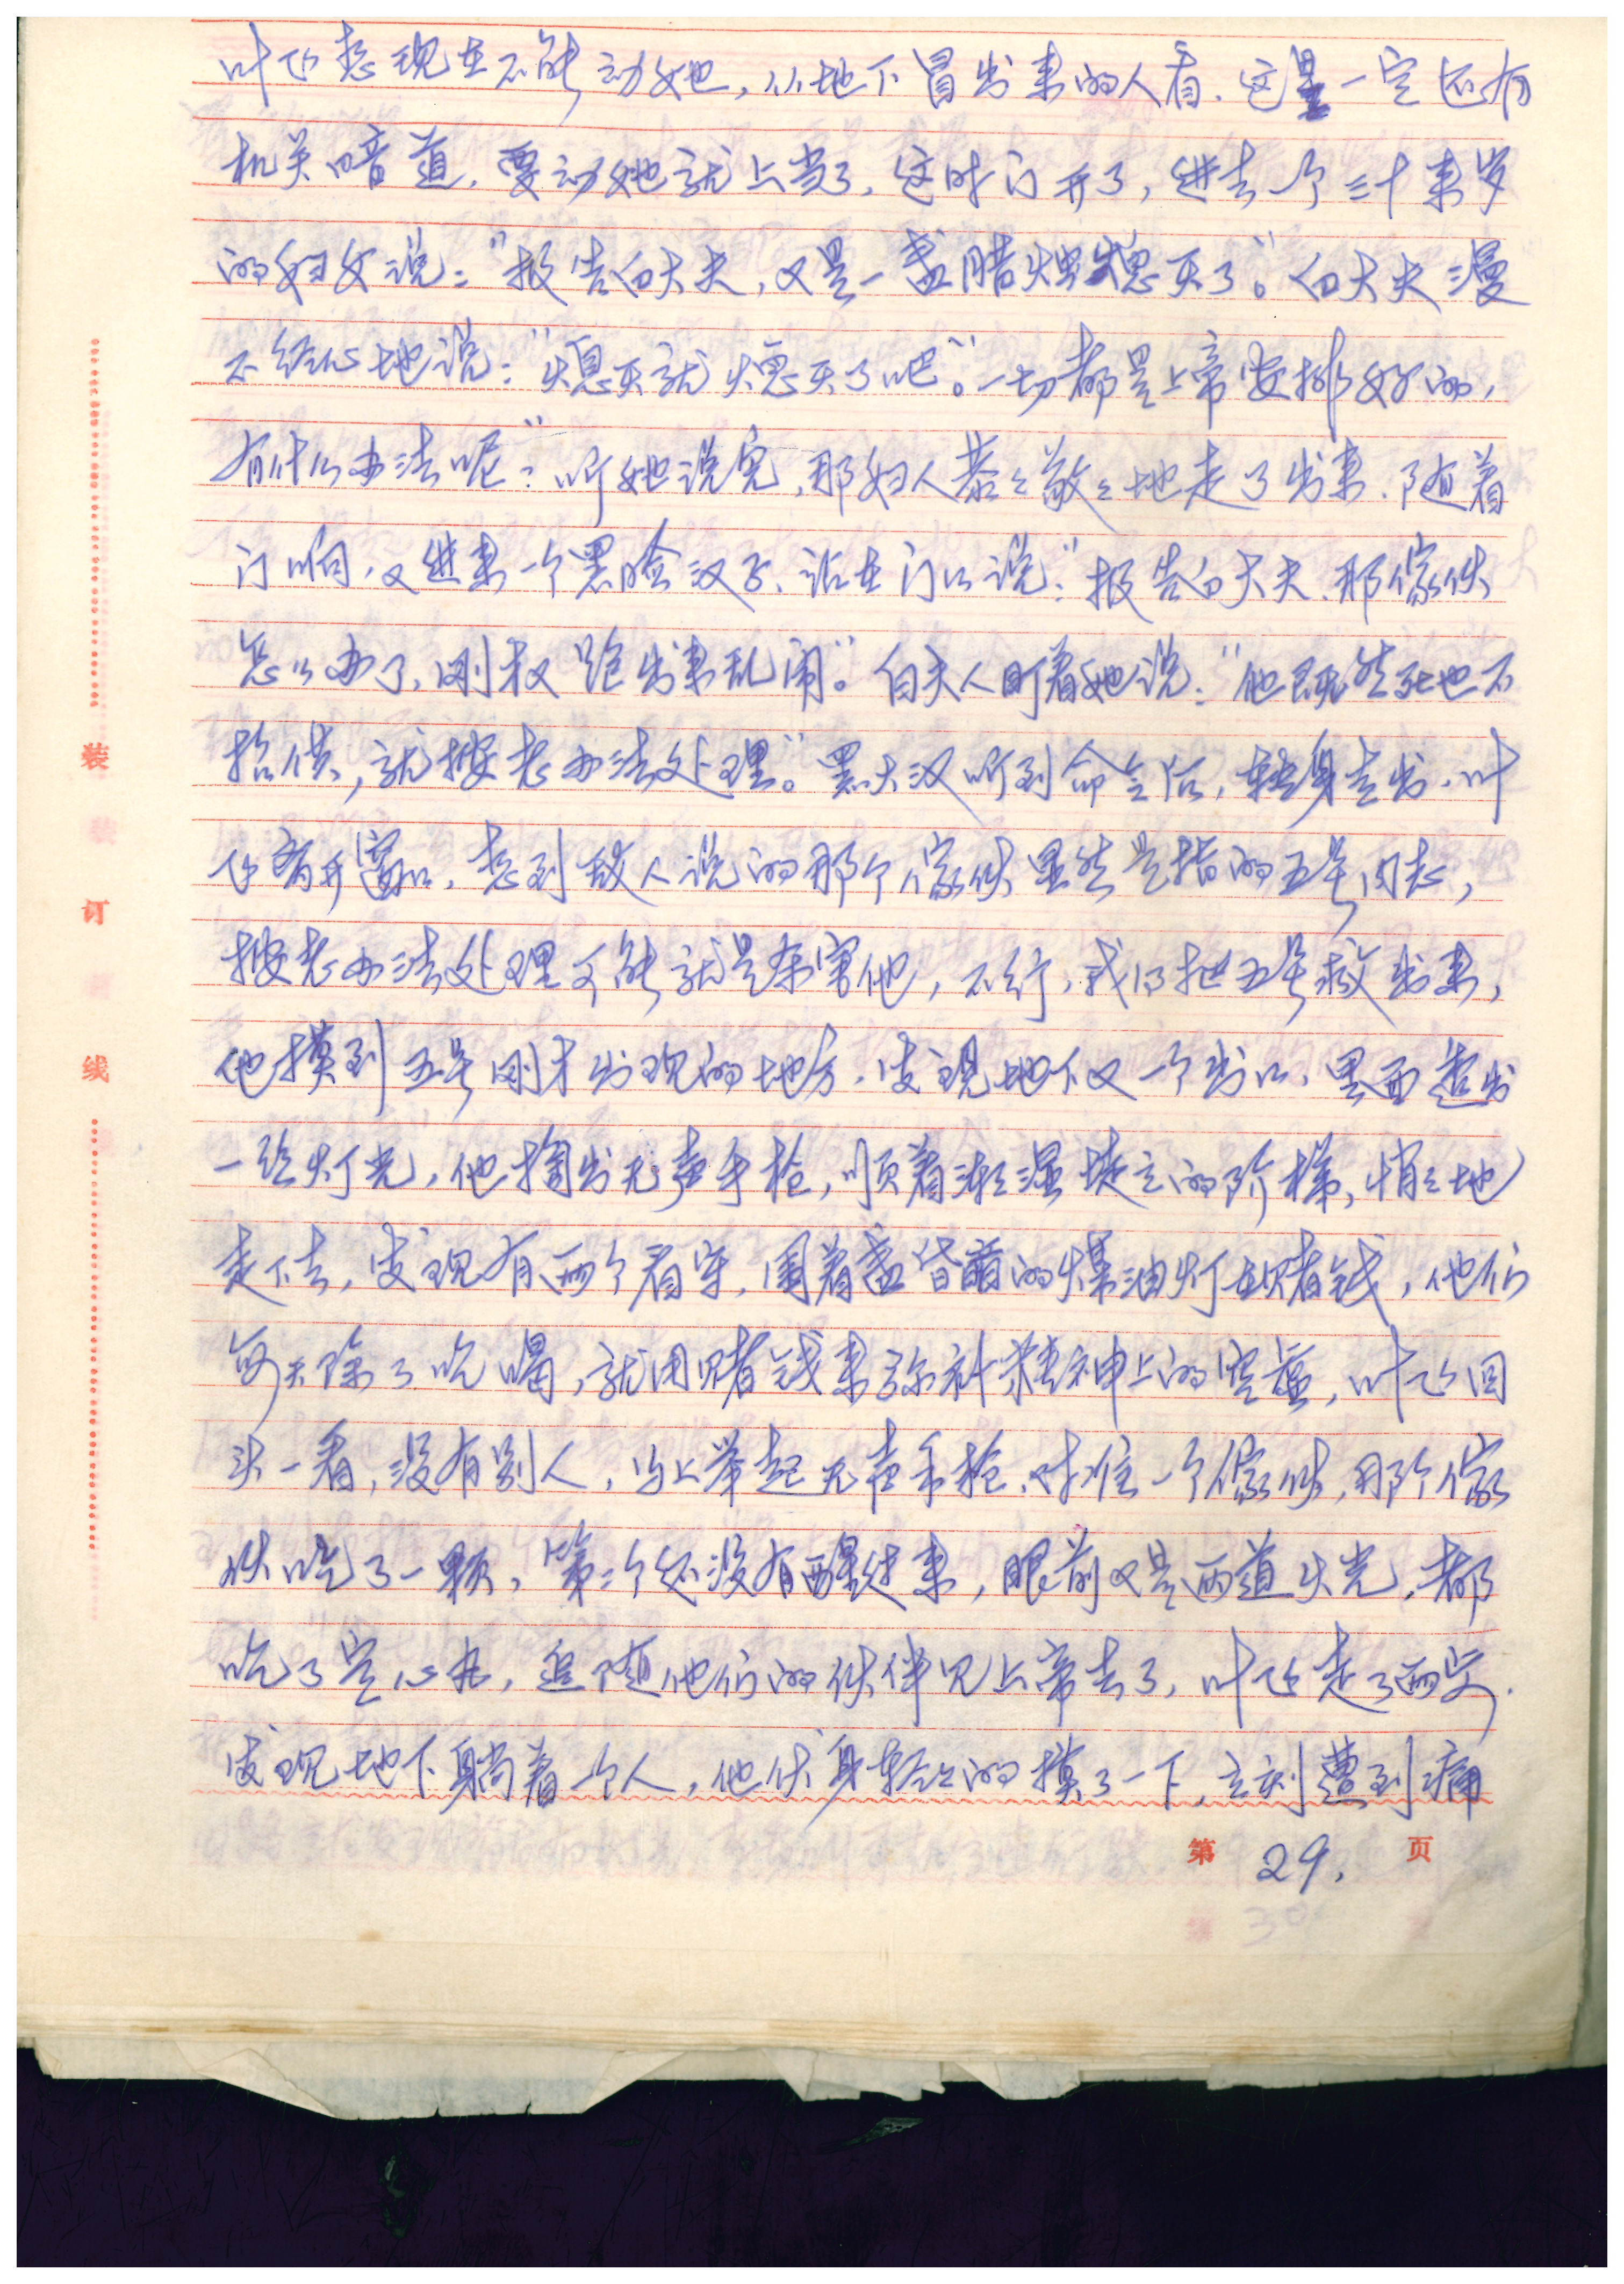 叶飞想现在不能动她，从地下冒出来的人看，这里一定还有
机关暗道，要动她就上当了，这时门开了，进去一个三十来岁
的妇女说："报告白大夫，又是一盏腊烛熄灭了。"白大夫漫
不经心地说："熄灭就熄灭了吧。"一切都是上帝安排好的，
有什么办法呢？"听她说完，那妇人恭々敬々地走了出来，随着
门响，又进来一个黑脸汉子，站在门口说："报告白大夫，那傢伙
怎么办了，刚才又跑出来乱闹。"白夫人盯着她说："他既然死也不
招供，就按老办法处理。"黑大汉听到命令后，转身走出，叶
飞离开窗口，想到敌人说的那个傢伙显然是指的五号同志，
按老办法处理可能就是杀害他，不行，我得把五号救出来，
他摸到五号刚才出现的地方，发现地下又一个出口，里面透出
一丝灯光，他掏出无声手枪，顺着潮湿陡立的阶梯，悄々地
走下去，发现有两个看守，围着盏昏暗的煤油灯在赌钱，他们
每天除了吃喝，就用赌钱来弥补精神上的空虚，叶飞回
头一看，没有别人，马上举起无声手枪，对准一个傢伙，那个傢
伙吃了一颗，第二个还没有醒过来，眼前又是两道火光，都
吃了定心丸，追随他们的伙伴见上帝去了，叶飞走了两步，
发现地下躺着一个人，他伏身轻々的摸了一下，立刻遭到痛
第 29. 页
装
订
线